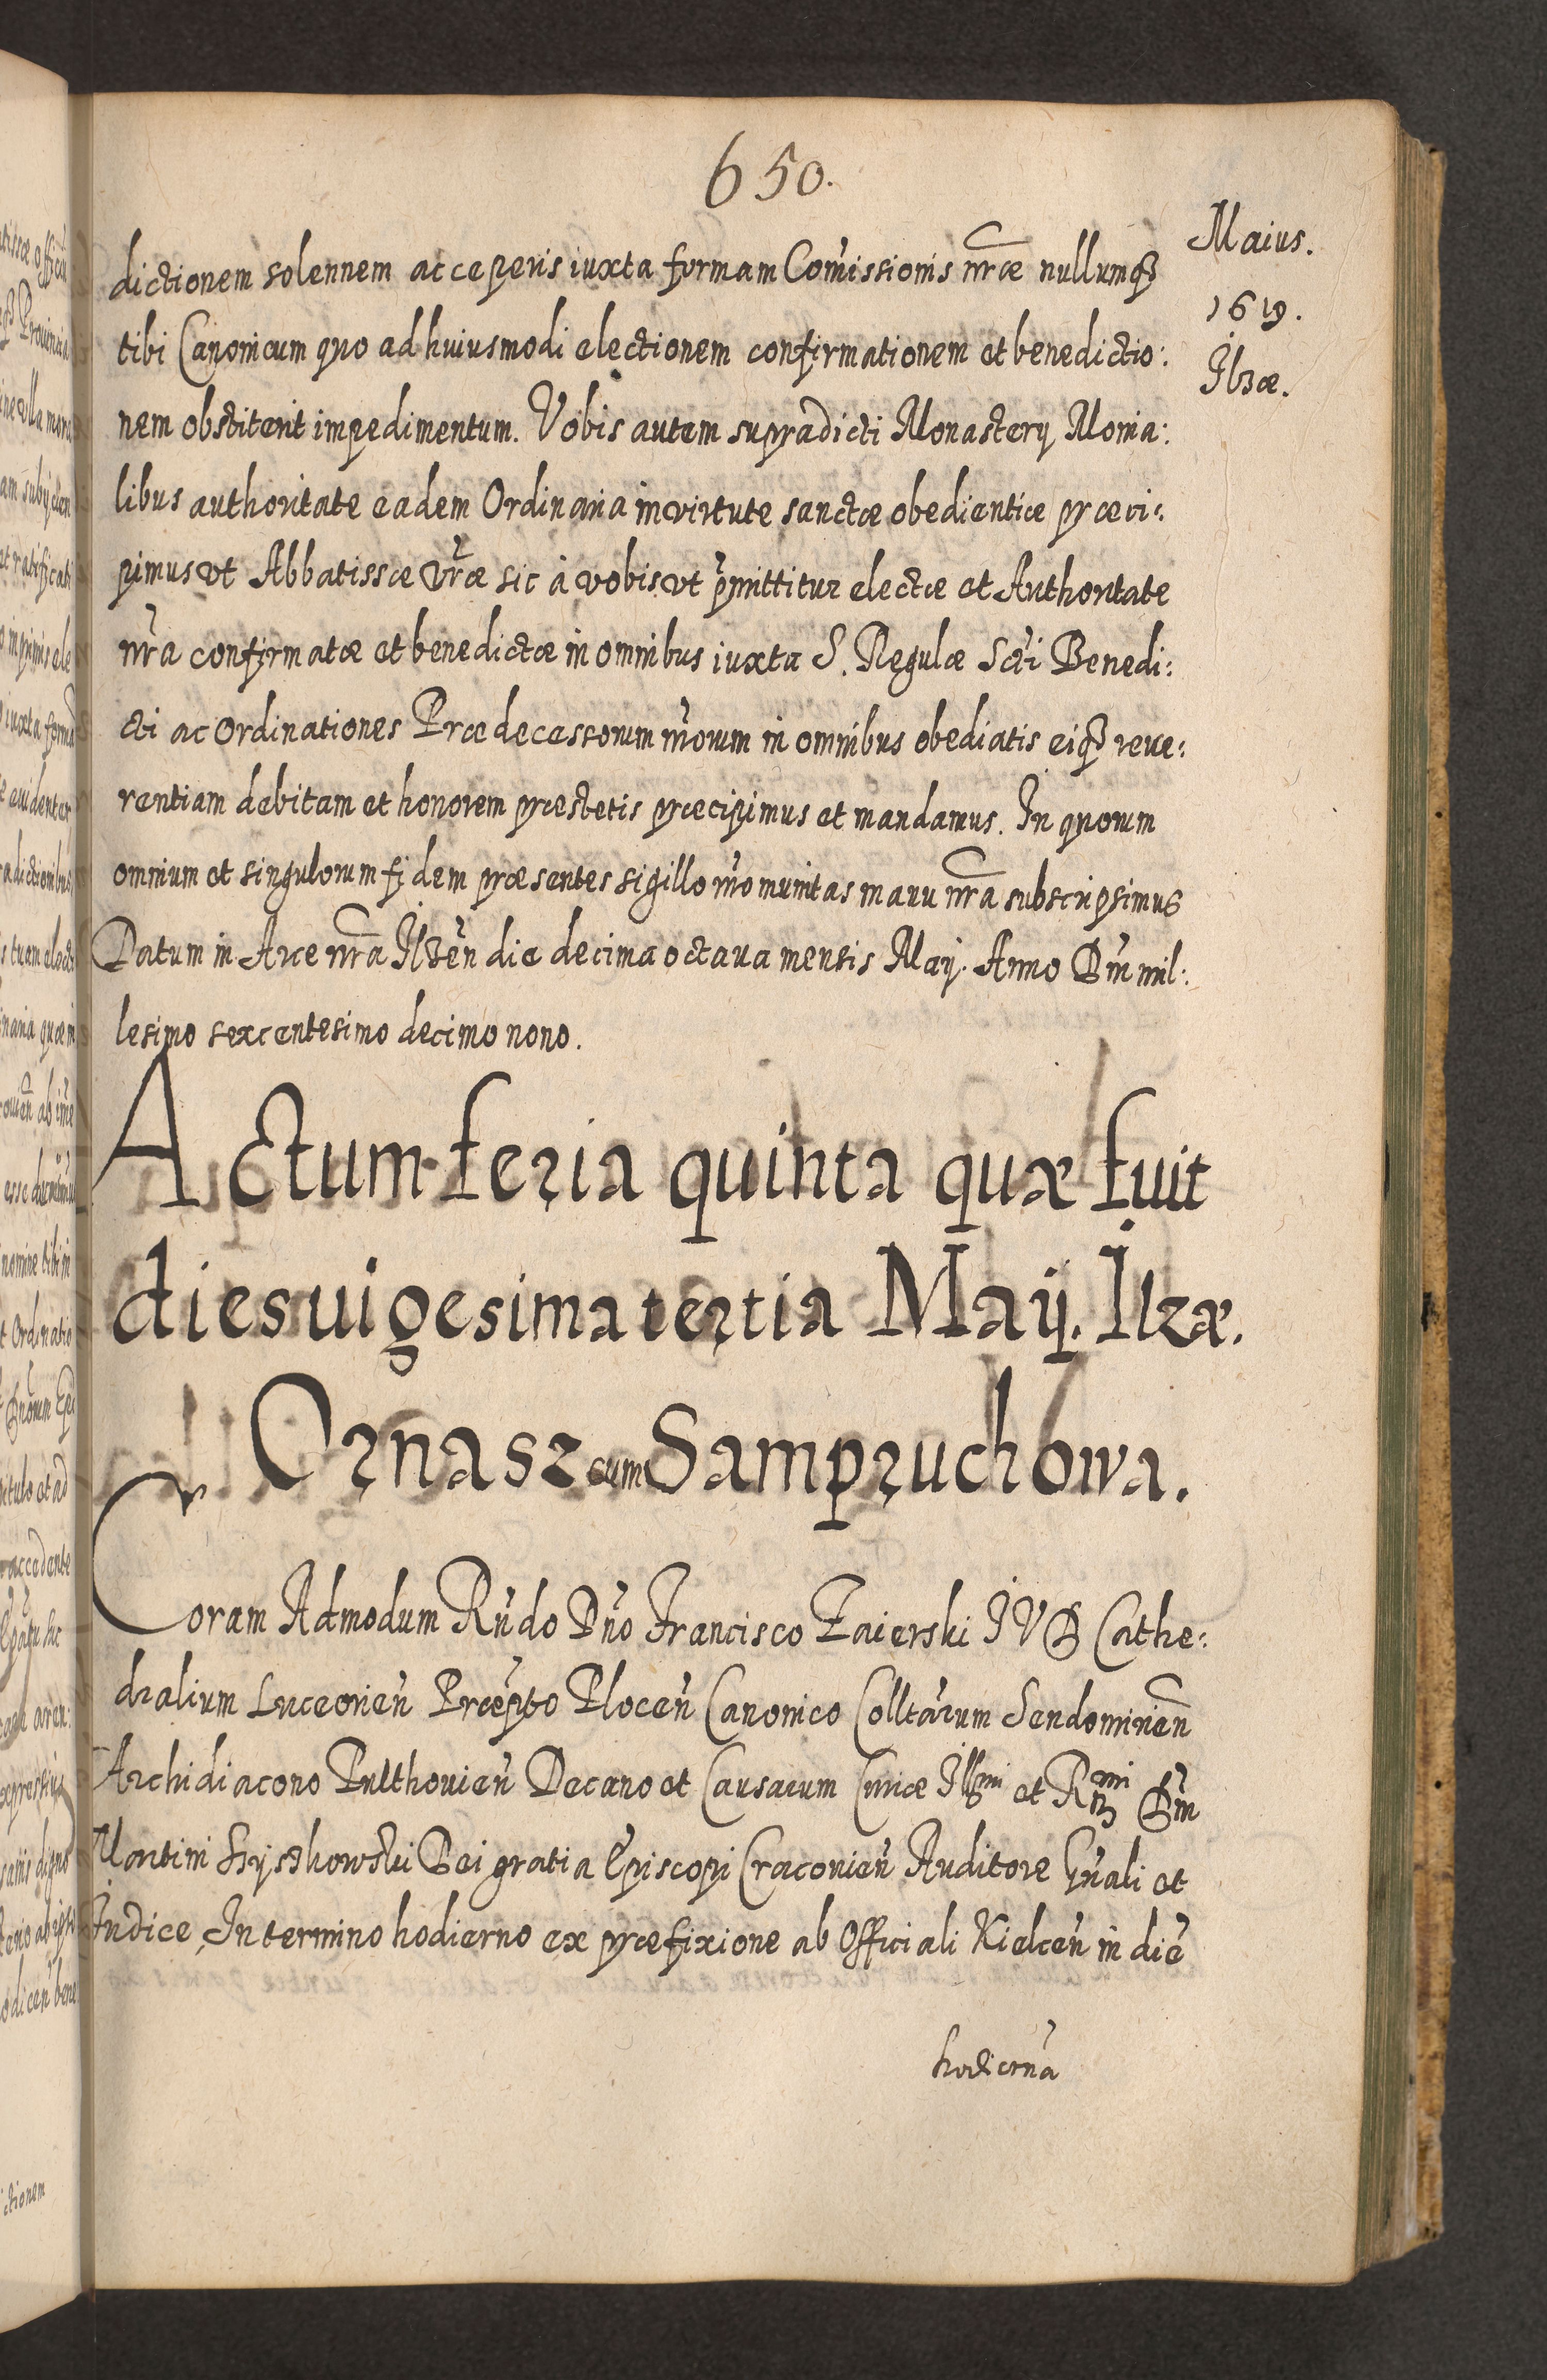 650.
Maius.
1619.
Ilzæ.
dictionem solennem acceperis iuxta formam Com̃issionis nr̃æ nullumq3
tibi Canonicum quo ad huiusmodi electionem confirmationem et benedictio:
nem obstiterit impedimentum. Vobis autem supradicti Monasterij Monia:
libus authoritate eadem Ordinaria in virtute sanctæ obedientiæ præci:
pimus vt Abbatissæ vr̃æ sic à vobis vt p̃mittitur electæ et Authoritate
nr̃a confirmatæ et benedictæ in omnibus iuxta S. Regulæ Scti Benedi:
cti ac Ordinationes Prædecessorum nr̃orum in omnibus obediatis eiq3 reue:
rentiam debitam et honorem præstetis præcipimus et mandamus. In quorum
omnium et singulorum fidem præsentes sigillo nr̃o munitas manu nr̃a subscripsimus
Datum in Arce nr̃a Ilzeñ die decima octaua mensis Maij. Anno Dñi mil:
lesimo sexcentesimo decimo nono.
Actum feria quinta quæ fuit
dies uigesima tertia Maij. Ilzæ.
Ornasz cum Sampruchowa.
Coram Admodum Rñdo Dño Francisco Zaierski IVD Cathe:
dralium Luceorieñ Præp̃to Ploceñ Canonico Colltãrum Sendomirieñ
Archidiacono Pulthouieñ Decano et Causarum Curiæ Illmi et Rmi Dñi
Martini Szyszkowski Dei gratia Episcopi Cracouieñ Auditore Gñali et
Iudice, In termino hodierno ex præfixione ab Officiali Kielceñ in diẽ
hodiernã